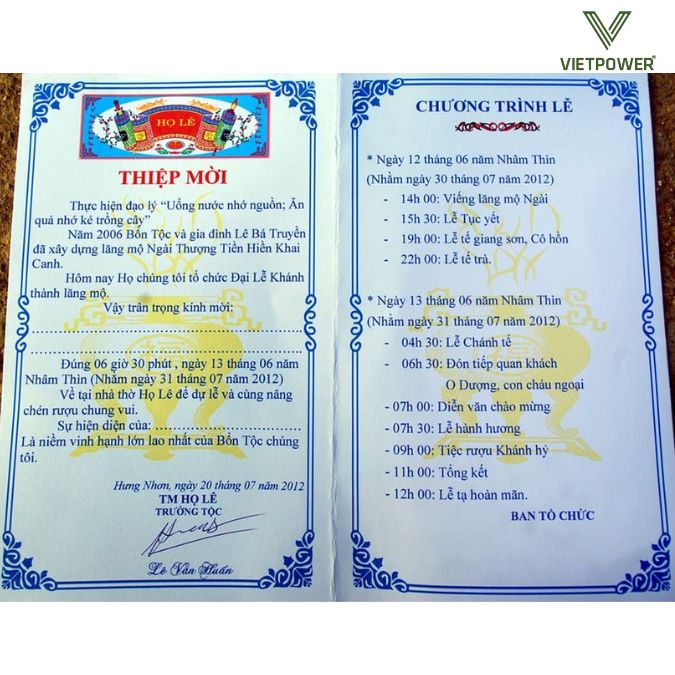 VIETPOWER
HỌ LÊ
THIỆP MỜI
Thực hiện đạo lý “Uống nước nhớ nguồn; Ăn
quả nhớ kẻ trồng cây”
Năm 2006 Bổn Tộc và gia đình Lê Bá Truyền
đã xây dựng lăng mộ Ngài Thượng Tiền Hiền Khai
Canh.
Hôm nay Họ chúng tôi tổ chức Đại Lễ Khánh
thành lăng mộ.
Vậy trân trọng kính mời:
Đúng 06 giờ 30 phút , ngày 13 tháng 06 năm
Nhâm Thìn (Nhằm ngày 31 tháng 07 năm 2012)
Về tại nhà thờ Họ Lê để dự lễ và cùng nâng
chén rượu chung vui.
Sự hiện diện của:
Là niềm vinh hạnh lớn lao nhất của Bổn Tộc chúng
tôi.
Hưng Nhơn, ngày 20 tháng 07 năm 2012
TM HỌ LÊ
TRƯỞNG TỘC
Lê Văn Huấn
CHƯƠNG TRÌNH LỄ
* Ngày 12 tháng 06 năm Nhâm Thìn
(Nhằm ngày 30 tháng 07 năm 2012)
- 14h 00: Viếng lăng mộ Ngài
- 15h 30: Lễ Tục yết
- 19h 00: Lễ tế giang sơn, Cô hồn
- 22h 00: Lễ tế trà.
* Ngày 13 tháng 06 năm Nhâm Thìn
(Nhằm ngày 31 tháng 07 năm 2012)
- 04h 30: Lễ Chánh tế
- 06h 30: Đón tiếp quan khách
O Dượng, con cháu ngoại
- 07h 00: Diễn văn chào mừng
- 07h 30: Lễ hành hương
- 09h 00: Tiệc rượu Khánh hỷ
- 11h 00: Tổng kết
- 12h 00: Lễ tạ hoàn mãn.
BAN TỔ CHỨC